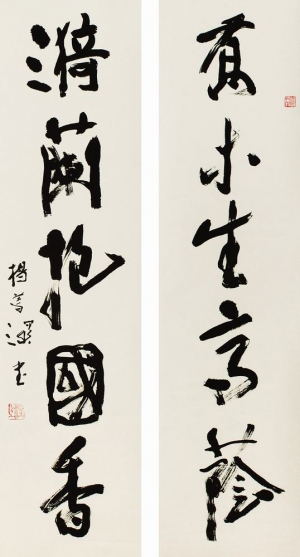 夏木生高蔭
漪蘭抱國香
楊善深書